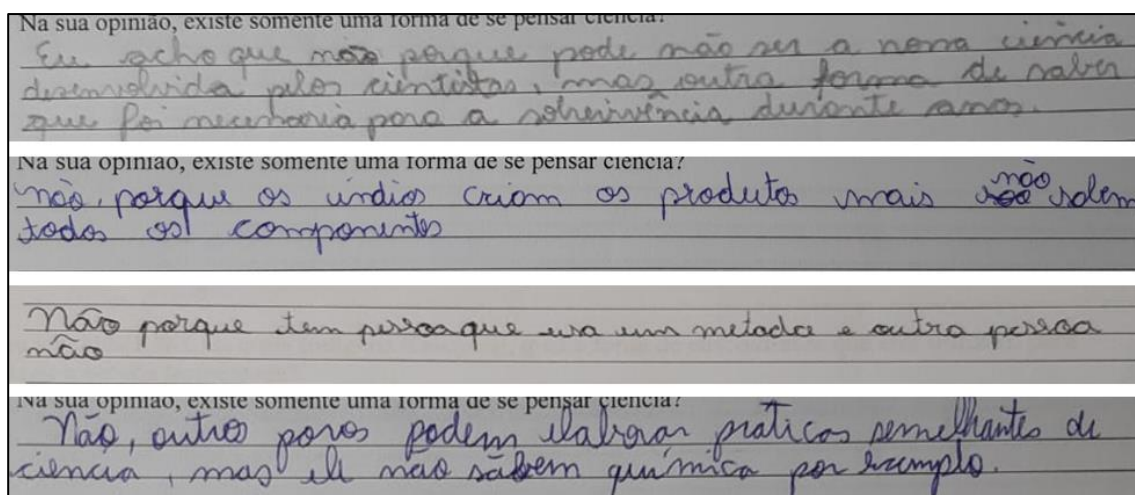 Na sua opinião, existe somente uma forma de se pensar ciência?
Eu acho que não porque pode não ser a nossa ciência
desenvolvida pelos cientistas, mas outra forma de saber
que foi necessaria para a sobrevivência durante anos.
Na sua opinião, existe somente uma forma de se pensar ciência?
não, porque os índios criam os produtos mais não
todos os componentes
Não porque tem pessoa que usa um metodo e outra pessoa
não
Na sua opinião, existe somente uma forma de se pensar ciência?
Não, outros povos podem elaborar praticas semelhantes de
ciência, mas ele nao sabem química por exemplo.